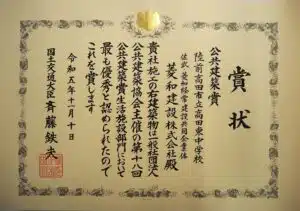 賞状
公共建築賞
陸前高田市立高田東中学校
佐武・菱和特定建設共同企業体
菱和建設株式会社殿
貴社施工の右建築物は一般社団法人
公共建築協会主催の第十八回
公共建築賞生活施設部門において
最も優秀と認められたので
これを賞します
令和五年十一月十日
国土交通大臣 斉藤鉄夫